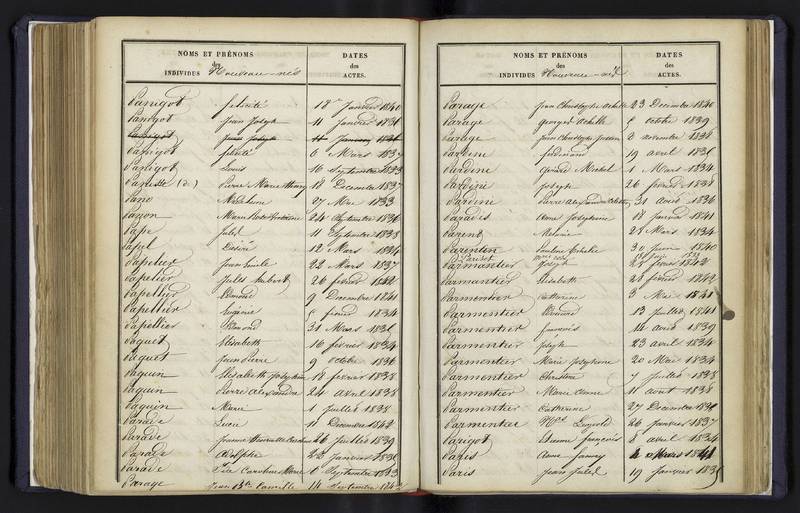 NOMS ET PRÉNOMS
des
INDIVIDUS Nouveau-nés
DATES
des
ACTES.
Panigot félicité 18 Janvier 1840
Panigot Jean Joseph 11 Janvier
Panigot Jean Joseph 11 Janvier
Panigot 6 Mars 1837
Panigot Louis 10 Septembre 1833
Pierre Marie 18 Décembre 1837
27 Mai 1833
Marie 24 Septembre 1836
Pape Jules 11 Septembre 1838
Papel Désiré 12 Mars 1834
Papelier Jean Emile 22 Mars 1837
Papelier Jules Hubert 26 février 1842
Papellier Edmond 9 Décembre 1841
Papellier Eugénie 5 février 1834
Papellier Edmond 31 Mars 1835
Paquet Elisabeth 16 février 1834
Paquet Jean Pierre 9 octobre 1836
Paquin Elisabeth Joséphine 18 février 1838
Paquin Pierre alexandre 24 avril 1838
Paquin Marie 1 Juillet 1838
Parade Lucie 11 Décembre 1842
Parade 26 Juillet 1839
Parade Adolphe 22 Janvier
Parade Caroline Marie 6 Septembre 1833
Parage Jean Bte Camille 14 Septembre
NOMS ET PRÉNOMS
des
INDIVIDUS Nouveau-nés
DATES
des
ACTES.
Parage Jean Christophe Achille 23 Décembre 1840
Parage Georges Achille 5 octobre 1839
Parage Jean Christophe 2 novembre 1838
Pardine ferdinand 19 avril 1835
Pardine Michel 1 Mars 1834
Pardine Joseph 26 février 1838
Pardine Pierre alexandre 31 Août 1836
Paradis Anne Joséphine 18 Janvier 1841
Parent Mélanie 28 Mars 1834
Parentin 30 Juin 1840
Parisot
Parmentier Joseph 1842
Parmentier Elisabeth 28 février 1842
Parmentier Catherine 3 Mai 1841
Parmentier Edouard 13 Juillet 1841
Parmentier françois 14 avril 1839
Parmentier Joseph 23 avril 1834
Parmentier Marie Joséphine 20 Mai 1834
Parmentier Christine 7 Juillet 1838
Parmentier Marie Anne 11 août 1838
Parmentier Catherine 27 Décembre
Parmentier Léopold 26 Janvier 1837
Parigot Etienne françois 8 avril 1834
Paris Anne fanny 2 Mars 1841
Paris Jean Jules 19 Janvier 1835